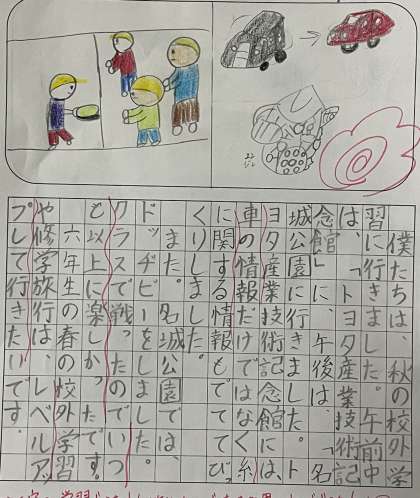 僕たちは、秋の校外学
習に行きました。午前中
は、「トヨタ産業技術記
念館」に行き、午後は名
城公園に行きました。ト
ヨタ産業技術記念館は、
車の情報だけでなく糸
に関する情報もでてびっ
くりしました。
また、名城公園では、
ドッヂビーをしました。
クラス戦だったのでいつ
も以上に楽しかったです。
六年生の春の校外学習
や修学旅行は、レベルアッ
プして行きたいです。